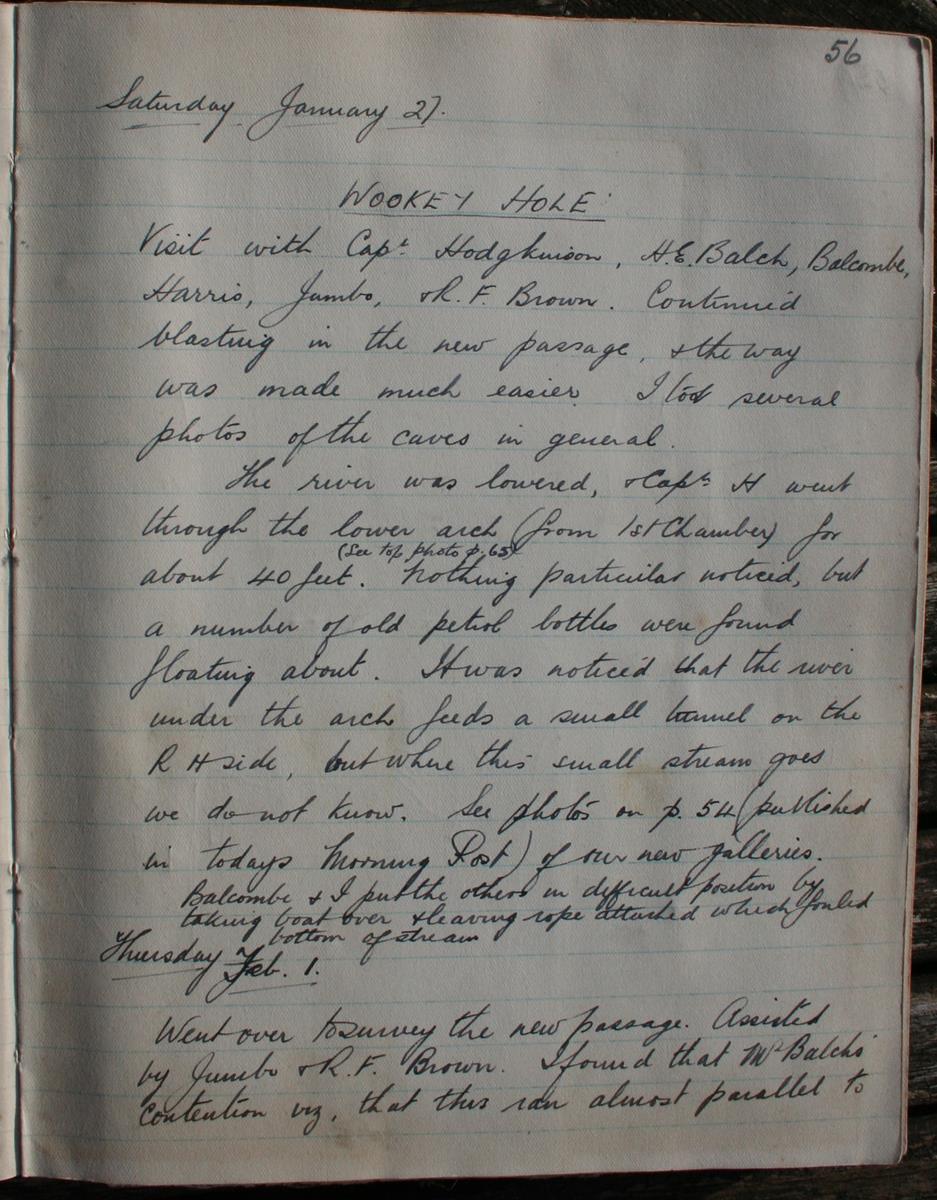 56
Saturday January 27.
WOOKEY HOLE
Visit with Capt. Hodgkinson, H.E. Balch, Balcombe,
Harris, Jumbo, & R. F. Brown. Continued
blasting in the new passage, & the way
was made much easier. I took several
photos of the caves in general.
The river was lowered, & Capt. H went
through the lower arch (from 1st Chamber) for
(See top photo p. 65)
about 40 feet. Nothing particular noticed, but
a number of old petrol bottles were found
floating about. It was noticed that the river
under the arch feeds a small tunnel on the
R H side, but where this small stream goes
we do not know. See photos on p. 54 (published
in todays Morning Post) of our new galleries.
Balcombe & I put the others in difficult position by
taking boat over & leaving rope attached which fouled
bottom of stream
Thursday Feb. 1.
Went over to survey the new passage. Assisted
by Jumbo & R. F. Brown. I found that Mr Balchs
contention viz, that this ran almost parallel to